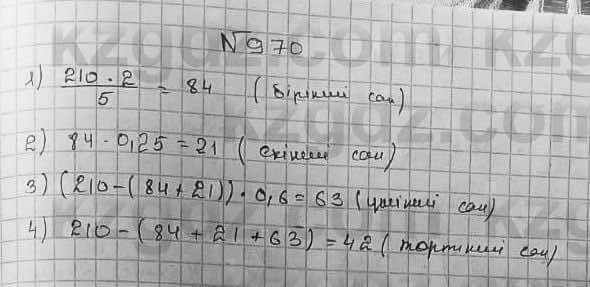 №970
1) 210 · 2 / 5 = 84 (бірінші сан)
2) 84 · 0,25 = 21 (екінші сан)
3) (210 - (84 + 21)) · 0,6 = 63 (үшінші сан)
4) 210 - (84 + 21 + 63) = 42 (төртінші сан)